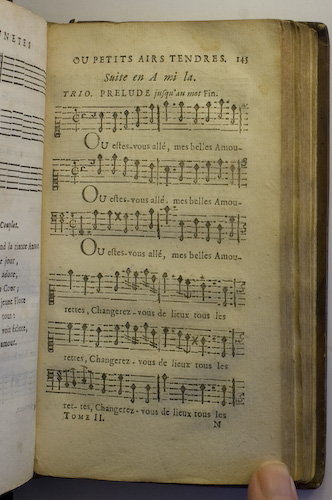 UNETES
Couplet.
OU PETITS AIRS TENDRES. 145
Suite en A mi la.
TRIO. PRELUDE jusqu'au mot Fin.
OU estes-vous allé, mes belles Amou-
OU estes-vous allé, mes belles Amou-
OU estes-vous allé, mes belles Amou-
rettes, Changerez-vous de lieux tous les
rettes, Changerez-vous de lieux tous les
ret-tes, Changerez-vous de lieux tous les
TOME II. N